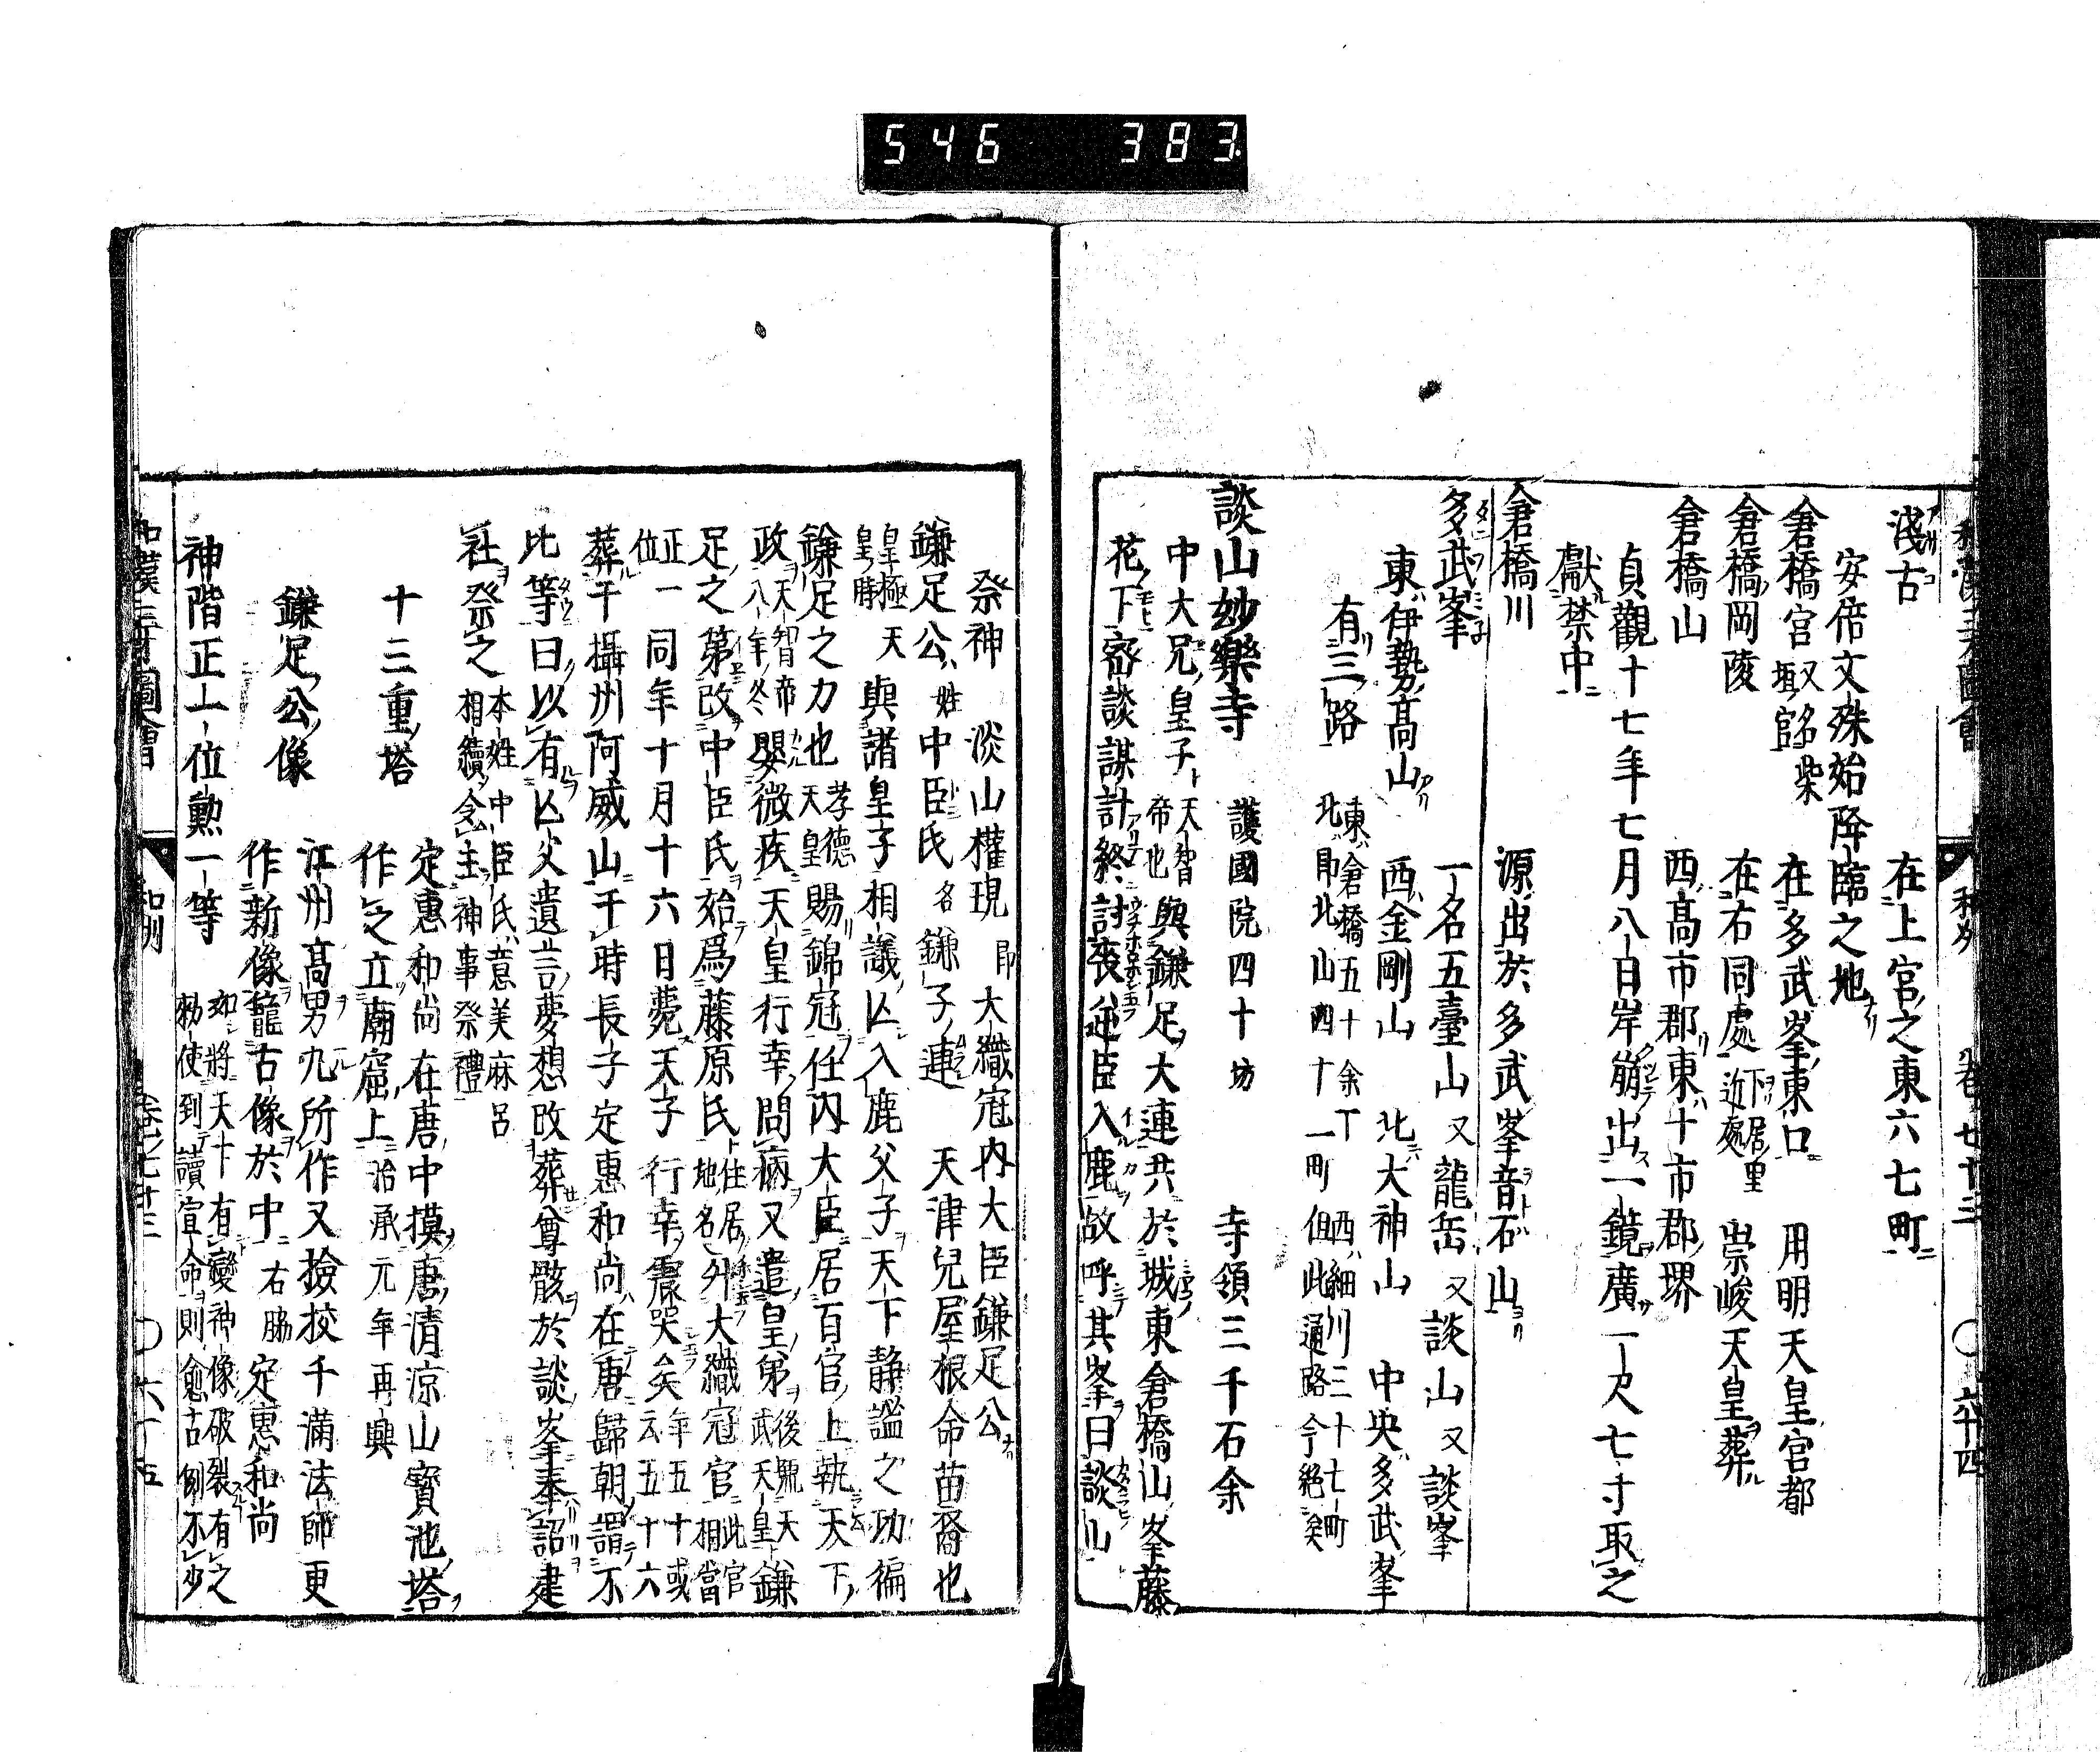 546 383
和漢三才圖會 和州 卷七十三 ○ 六十四
淺古 在上官之東六七町
安倍文殊始降臨之地
倉橋宮 又名柴垣宮 在多武峯東口 用明天皇宮都
倉橋岡陵 在右同處 下居里近處 崇峻天皇葬
倉橋山 西高市郡東十市郡堺
貞觀十七年七月八日岸崩出一鏡廣一尺七寸取之
獻禁中
倉橋川 源出於多武峯音石山
多武峯 一名五臺山 又龍岳 又談山 又談峯
東伊勢高山 西金剛山 北大神山 中央多武峯
有三路 東倉橋五十余丁 西細川三十七町 北即北山四十一町 但此通路今絕矣
談山妙樂寺 護國院四十坊 寺領三千石余
中大兄皇子 天智帝也 與鎌足大連共於城東倉橋山峯藤
花下密談謀計終討喪逆臣入鹿故呼其峯曰談山
祭神 淡山權現 即大織冠内大臣鎌足公
鎌足公 姓中臣氏 名鎌子連 天津兒屋根命苗裔也
皇極天皇時 與諸皇子相議亾入鹿父子天下靜謐之功徧
鎌足之力也 孝德天皇 賜錦冠任内大臣居百官上執天下
政 天智帝八年冬 嬰微疾天皇行幸問病又遣皇弟 後號天武天皇 鎌
足之第改中臣氏始爲藤原氏 住居地名 外大織冠官 此官相當
正一位 同年十月十六日薨天子行幸震哭矣 年五十或云五十六
葬于攝州阿威山于時長子定惠和尚在唐歸朝謂不
比等曰以有亾父遺言夢想改葬尊骸於談峯奉詔建
社祭之 本姓中臣氏意美麻呂相續念主神事祭禮
十三重塔 定惠和尚在唐中摸唐清凉山寳池塔
作之立廟窟上 治承元年再興
鎌足公像 江州高男丸所作又撿挍千滿法師更
作新像籠古像於中 右脇 定惠和尚
神階正一位勲一等 如將天下有變神像破裂有之 勅使到讀宣命則愈古創不少
和漢三才圖會 和州 卷之七十三 ○ 六十五